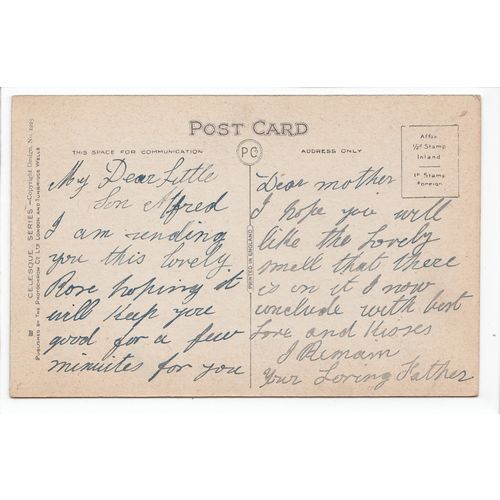 POST CARD
THIS SPACE FOR COMMUNICATION
ADDRESS ONLY
PC
Affix
½d Stamp
Inland
1d Stamp
Foreign.
CELESQUE SERIES—Copyright Design, No.
PUBLISHED BY THE PHOTOCHROM CO LTD LONDON AND TUNBRIDGE WELLS
PRINTED IN ENGLAND
My Dear Little
Son Alfred
I am sending
you this lovely
Rose hoping it
will keep you
good for a few
minuites for you
Dear mother
I hope you will
like the Lovely
smell that there
is on it I now
conclude with best
Love and Kisses
I Remain
Your Loving Father